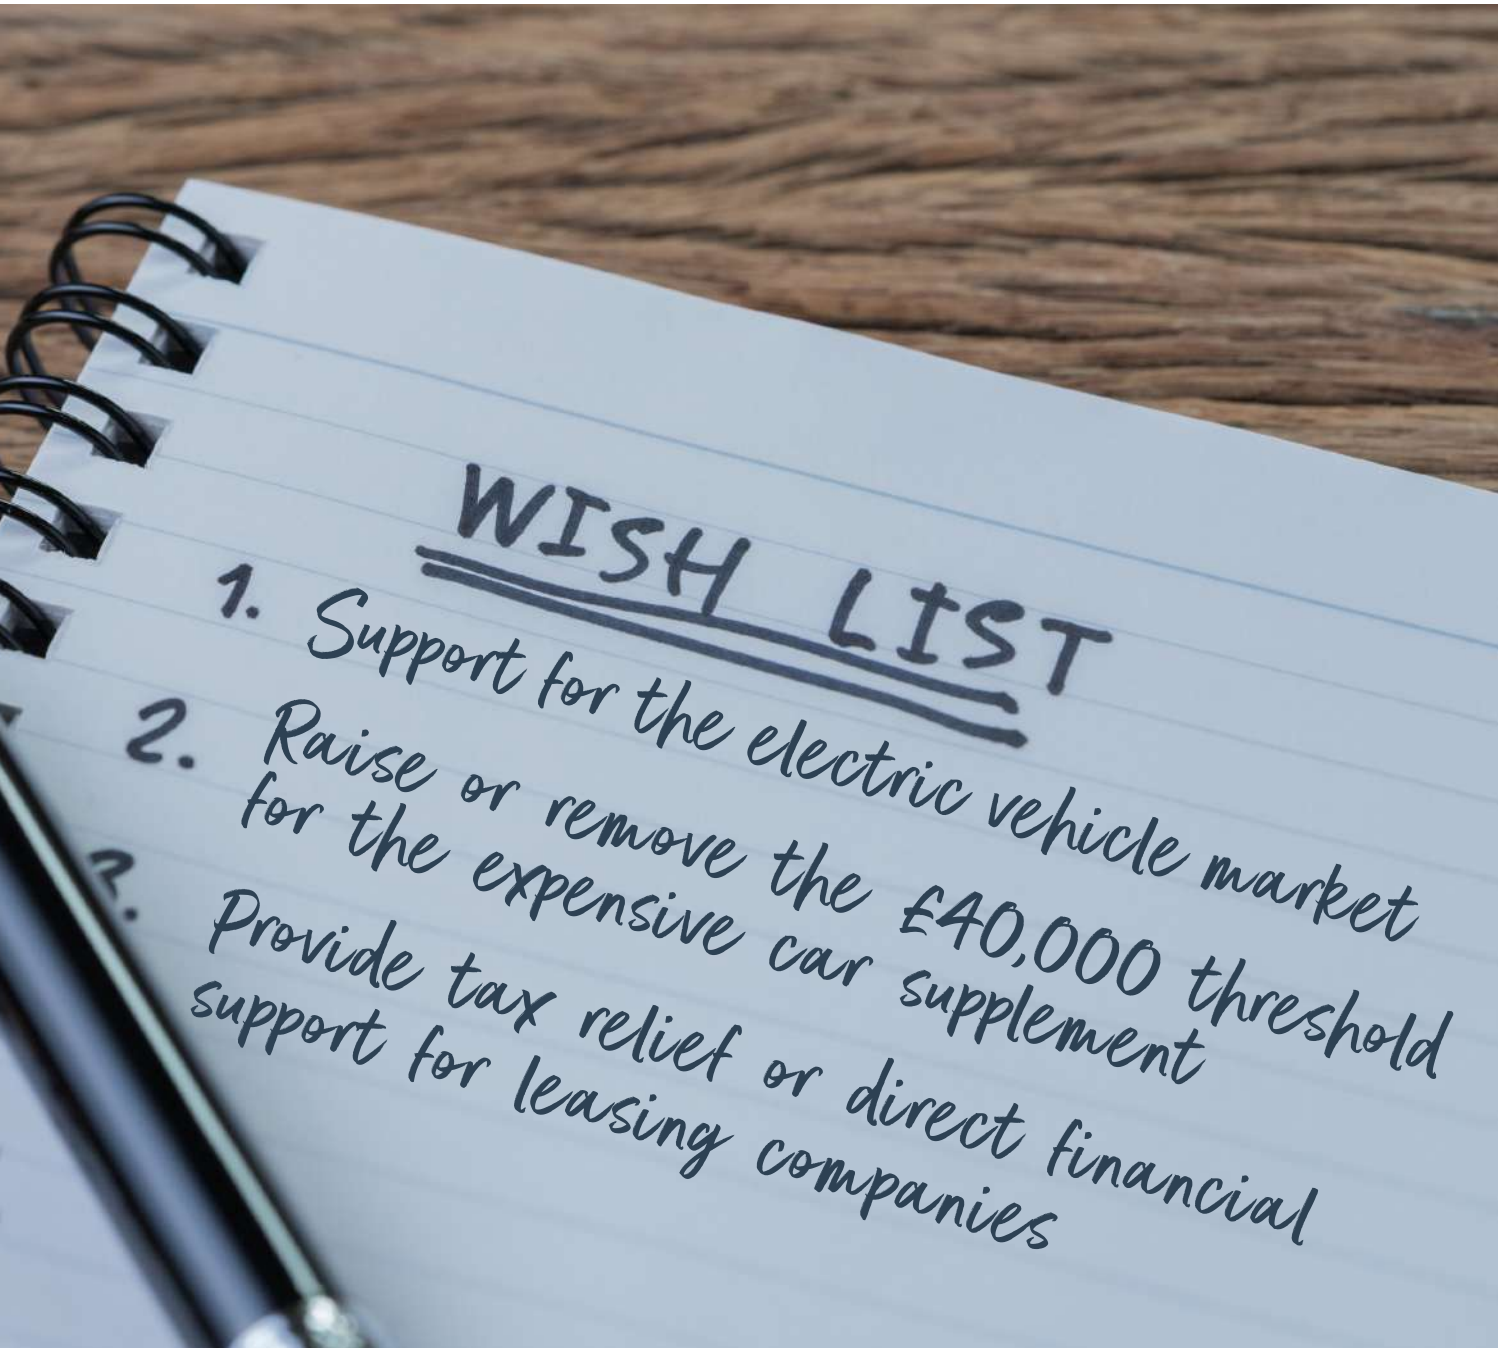 WISH LIST
1. Support for the electric vehicle market
2. Raise or remove the £40,000 threshold
for the expensive car supplement
3. Provide tax relief or direct financial
support for leasing companies